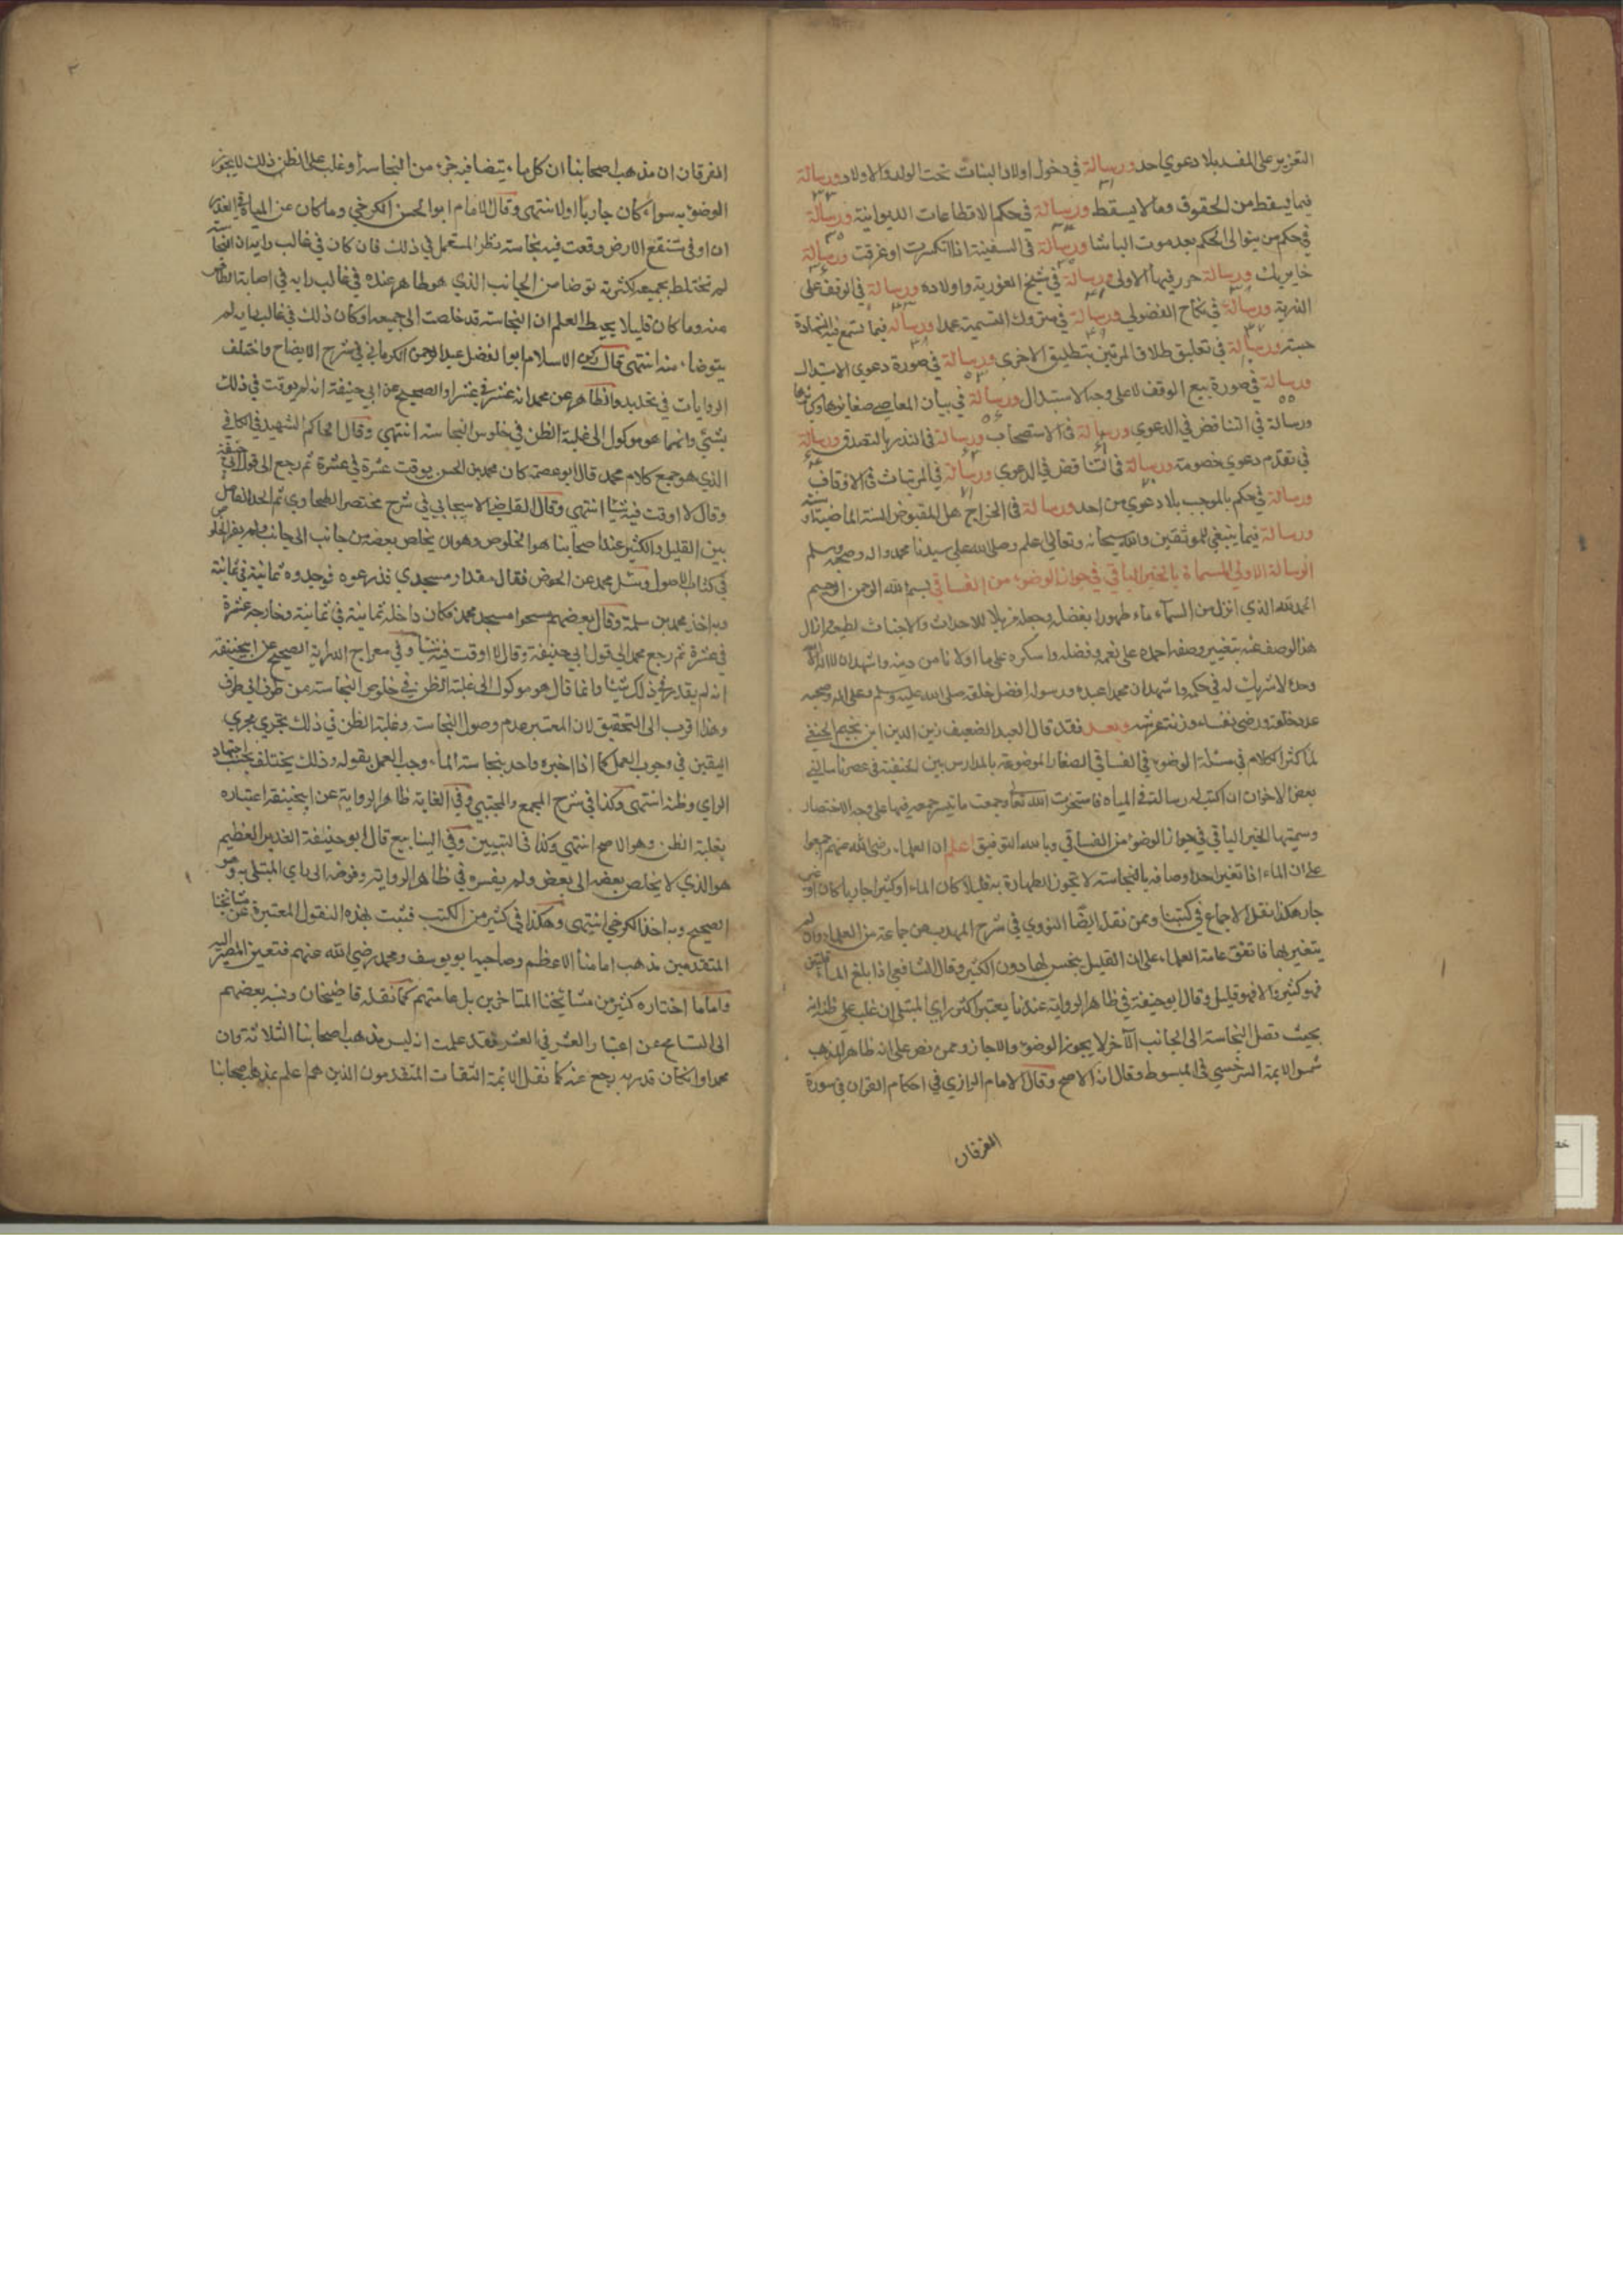 التعزير على المفسد بلا دعوي احد ورسالة في دخول اولاد البنات تحت الولد والاولاد ورسالة
فيما يسقط من الحقوق وما لا يسقط ورسالة في حكم الاقطاعات الديوانية ورسالة
في حكم من يتوالى الحكم بعد موت الباشا ورسالة في السفينة اذا انكسرت او غرقت ورسالة
خاير بك ورسالة حرر فيها الاولى ورسالة في شيخ الغورية واولاده ورسالة في الوقف على
الذرية ورسالة في نكاح الفضولي ورسالة في متروك التسمية عمدا ورسالة فيما تسمع فيه الشهادة
حسبة ورسالة في تعليق طلاق المرتين بتطليق الاخرى ورسالة في صورة دعوي الاستبدال
ورسالة في صورة بيع الوقف لا على وجه الاستبدال ورسالة في بيان المعاصي صغايرها وكبايرها
ورسالة في التناقض في الدعوي ورسالة في الاستصحاب ورسالة في النذر بالتصدق ورسالة
في تقدم دعوي خصومة ورسالة في التناقض في الدعوي ورسالة في المرتبات في الاوقاف
ورسالة في حكم بالموجب بلا دعوي من احد ورسالة في الخراج هل المقبوض السنة الماضية او
ورسالة فيما ينبغي للموثقين والله سبحانه وتعالى اعلم وصلى الله على سيدنا محمد واله وصحبه وسلم
الرسالة الاولى المسماة بالخير الباقي في جواز الوضوء من الفساقي بسم الله الرحمن الرحيم
الحمد لله الذي انزل من السماء ماء طهورا بفضله وجعله مزيلا للاحداث والاجناث لطبعه وازال
هذا الوصف عنه بتغيير وصفه احمده على نعمه وفضله واشكره على ما اولانا من دينه واشهد ان لا اله الا الله
وحده لا شريك له في حكمه واشهد ان محمدا عبده ورسوله افضل خلقه صلى الله عليه وسلم وعلى اله وصحبه
عدد خلقه ورضى نفسه وزنة عرشه وبعد فقد قال العبد الضعيف زين الدين ابن نجيم الحنفي
لما كثر الكلام في مسئلة الوضوء في الفساقي الصغار الموضوعة بالمدارس بين الحنفية في عصرنا سالني
بعض الاخوان ان اكتب له رسالة في المياه فاستخرت الله تعالى وجمعت ما تيسر جمعه فيها على وجه الاختصار
وسميتها الخير الباقي في جواز الوضوء من الفساقي وبالله التوفيق اعلم ان العلماء رضى الله عنهم اجمعوا
على ان الماء اذا تغير احد اوصافه بالنجاسة لا تجوز الطهارة به قليلا كان الماء او كثيرا جاريا كان او غير
جار هكذا نقل الاجماع في كتبنا وممن نقل ايضا النووي في شرح المهذب عن جماعة من العلماء وان لم
يتغير بها فاتفق عامة العلماء على ان القليل ينجس لها دون الكثير وقال الشافعي اذا بلغ الماء قلتين
فهو كثير والا فهو قليل وقال ابو حنيفة في ظاهر الرواية عندنا يعتبر اكثر راي المبتلى ان غلب على ظنه انه
بحيث تصل النجاسة الى الجانب الآخر لا يجوز الوضوء والا جاز وممن نص على انه ظاهر المذهب
شمس الايمة السرخسي في المبسوط وقال انه الاصح وقال الامام الرازي في احكام القران في سورة
الفرقان
الفرقان ان مذهب اصحابنا ان كل ماء يتيقنا فيه جزء من النجاسة او غلب على الظن ذلك لا يجوز
الوضوء به سواء كان جاريا او لا انتهى وقال الامام ابو الحسن الكرخي وما كان عن المياه في الغدر
ان او في مستنقع الارض وقعت فيه نجاسة نظر المستعمل في ذلك فان كان في غالب رايه ان النجاسة
لم تختلط بجميعه لكثرته توضا من الجانب الذي هو طاهر عنده في غالب رايه في اصابة الطاهر
منه وما كان قليلا يحيط العلم ان النجاسة قد خلصت الى جميعه او كان ذلك في غالب رايه لم
يتوضا منه انتهى قال ركن الاسلام ابو الفضل عبد الرحمن الكرماني في شرح الايضاح واختلف
الروايات في تحديده والظاهر عن محمد انه عشر في عشر والصحيح عن ابي حنيفة انه لم يوقت في ذلك
بشيء وانما هو موكول الى غلبة الظن في خلوص النجاسة انتهى وقال الحاكم الشهيد في الكافي
الذي هو جمع كلام محمد قال ابو عصمة كان محمد بن الحسن يوقت عشرة في عشرة ثم رجع الى قول ابي حنيفة
وقال لا اوقت فيه شيئا انتهى وقال القاضي الاسبيجابي في شرح مختصر الطحاوي ثم الحد الفاصل
بين القليل والكثير عند اصحابنا هو الخلوص وهو ان يخلص بعضه من جانب الى جانب ولم يفسر الخلوص
في كتاب الاصول وسئل محمد عن الحوض فقال مقدار مسجدي فذرعوه فوجدوه ثمانية في ثمانية
وبه اخذ محمد بن سلمة وقال بعضهم مسحوا مسجد محمد فكان داخله ثمانية في ثمانية وخارجه عشرة
في عشرة ثم رجع محمد الى قول ابي حنيفة وقال لا اوقت فيه شيئا وفي معراج الدراية الصحيح عن ابي حنيفة
انه لم يقدر في ذلك شيئا وانما قال هو موكول الى غلبة الظن في خلوص النجاسة من طرف الى طرف
وهذا اقرب الى التحقيق لان المعتبر عدم وصول النجاسة وغلبة الظن في ذلك تجري مجري
اليقين في وجوب العمل كما اذا اخبره واحد بنجاسة الماء وجب العمل بقوله وذلك يختلف بحسب اجتهاد
الراي وظنه انتهى وكذا في شرح المجمع والمجتبي وفي الغاية ظاهر الرواية عن ابي حنيفة اعتباره
بغلبة الظن وهو الاصح انتهي وكذا في التبيين وفي الينابيع قال ابو حنيفة الغدير العظيم
هو الذي لا يخلص بعضه الى بعض ولم يفسره في ظاهر الرواية وفوضه الى راي المبتلى به وهو
الصحيح وبه اخذ الكرخي انتهى وهكذا في كثير من الكتب فثبت بهذه النقول المعتبرة عن مشايخنا
المتقدمين مذهب امامنا الاعظم وصاحبيه ابو يوسف ومحمد رضي الله عنهم فتعين المصير اليه
واما ما اختاره كثير من مشائخنا المتاخرين بل عامتهم كما نقله قاضيخان ونسبه بعضهم
الى التسامح عن اعتبار العشر في العشر فقد علمت انه ليس مذهب اصحابنا الثلاثة وان
محمدا وان كان قدر به رجع عنه كما نقل الائمة الثقات المتقدمون الذين هم اعلم بمذهب اصحابنا